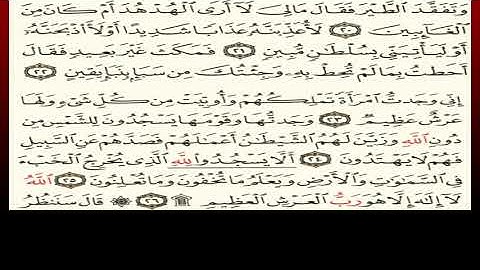 وَتَفَقَّدَ ٱلطَّيۡرَ فَقَالَ مَالِيَ لَآ أَرَى ٱلۡهُدۡهُدَ أَمۡ كَانَ مِنَ
ٱلۡغَآئِبِينَ ٢٠ لَأُعَذِّبَنَّهُۥ عَذَابٗا شَدِيدًا أَوۡ لَأَاْذۡبَحَنَّهُۥٓ
أَوۡ لَيَأۡتِيَنِّي بِسُلۡطَٰنٖ مُّبِينٖ ٢١ فَمَكَثَ غَيۡرَ بَعِيدٖ فَقَالَ
أَحَطتُ بِمَا لَمۡ تُحِطۡ بِهِۦ وَجِئۡتُكَ مِن سَبَإِۭ بِنَبَإٖ يَقِينٍ ٢٢
إِنِّي وَجَدتُّ ٱمۡرَأَةٗ تَمۡلِكُهُمۡ وَأُوتِيَتۡ مِن كُلِّ شَيۡءٖ وَلَهَا
عَرۡشٌ عَظِيمٞ ٢٣ وَجَدتُّهَا وَقَوۡمَهَا يَسۡجُدُونَ لِلشَّمۡسِ مِن
دُونِ ٱللَّهِ وَزَيَّنَ لَهُمُ ٱلشَّيۡطَٰنُ أَعۡمَٰلَهُمۡ فَصَدَّهُمۡ عَنِ ٱلسَّبِيلِ
فَهُمۡ لَا يَهۡتَدُونَ ٢٤ أَلَّا يَسۡجُدُواْ لِلَّهِ ٱلَّذِي يُخۡرِجُ ٱلۡخَبۡءَ
فِي ٱلسَّمَٰوَٰتِ وَٱلۡأَرۡضِ وَيَعۡلَمُ مَا تُخۡفُونَ وَمَا تُعۡلِنُونَ ٢٥ ٱللَّهُ
لَآ إِلَٰهَ إِلَّا هُوَ رَبُّ ٱلۡعَرۡشِ ٱلۡعَظِيمِ ۩ ٢٦ ۞ قَالَ سَنَنظُرُ